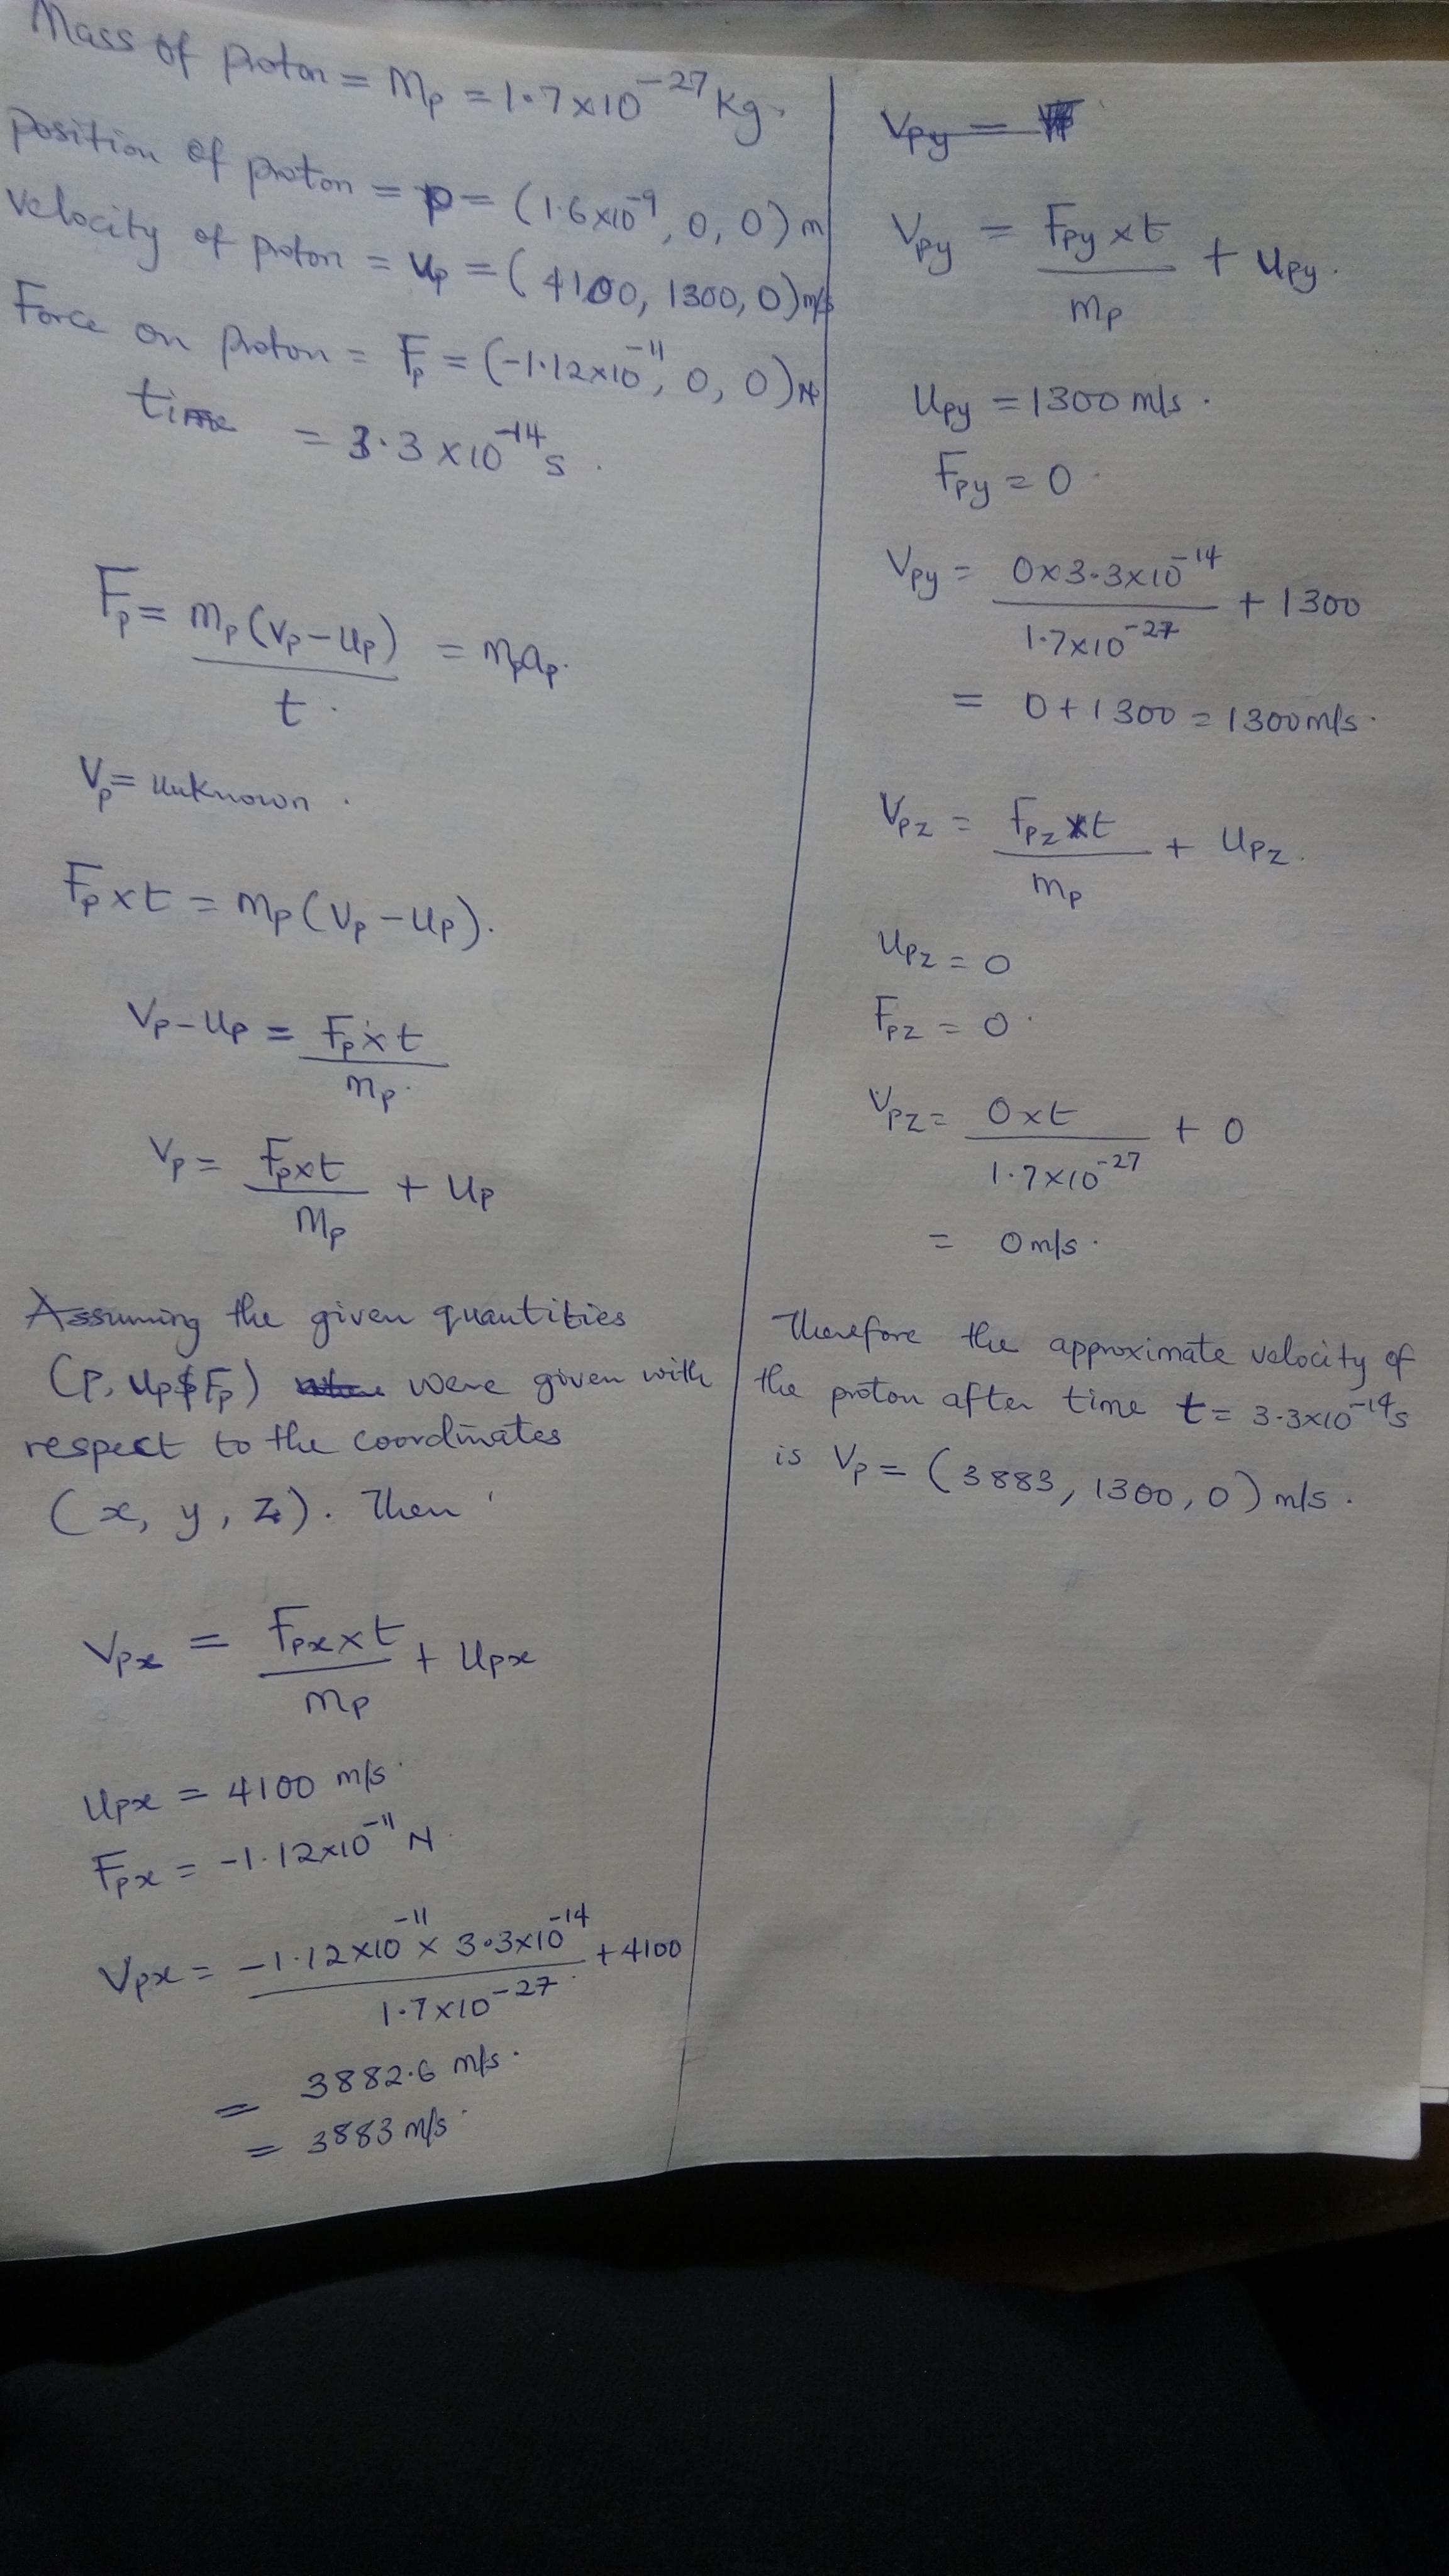 Mass of proton = Mp = 1.7×10⁻²⁷ Kg.
Position of proton = p = (1.6×10⁻⁹, 0, 0) m
velocity of proton = Up = (4100, 1300, 0) m/s
Force on proton = Fp = (-1.12×10⁻¹¹, 0, 0) N
time = 3.3×10⁻¹⁴ s.
Fp = mp(Vp - Up) / t. = mpap.
Vp = Unknown.
Fp × t = mp(Vp - Up).
Vp - Up = Fp × t / mp.
Vp = Fp × t / mp + Up
Assuming the given quantities
(P, Up & Fp) were given with
respect to the coordinates
(x, y, z). Then
Vpx = Fpx × t / mp + Upx
Upx = 4100 m/s.
Fpx = -1.12×10⁻¹¹ N.
Vpx = -1.12×10⁻¹¹ × 3.3×10⁻¹⁴ / 1.7×10⁻²⁷ + 4100
= 3882.6 m/s.
= 3883 m/s.
Vpy =
Vpy = Fpy × t / mp + Upy.
Upy = 1300 m/s.
Fpy = 0.
Vpy = 0×3.3×10⁻¹⁴ / 1.7×10⁻²⁷ + 1300
= 0 + 1300 = 1300 m/s.
Vpz = Fpz × t / mp + Upz.
Upz = 0
Fpz = 0.
Vpz = 0×t / 1.7×10⁻²⁷ + 0
= 0 m/s.
Therefore the approximate velocity of
the proton after time t = 3.3×10⁻¹⁴s
is Vp = (3883, 1300, 0) m/s.